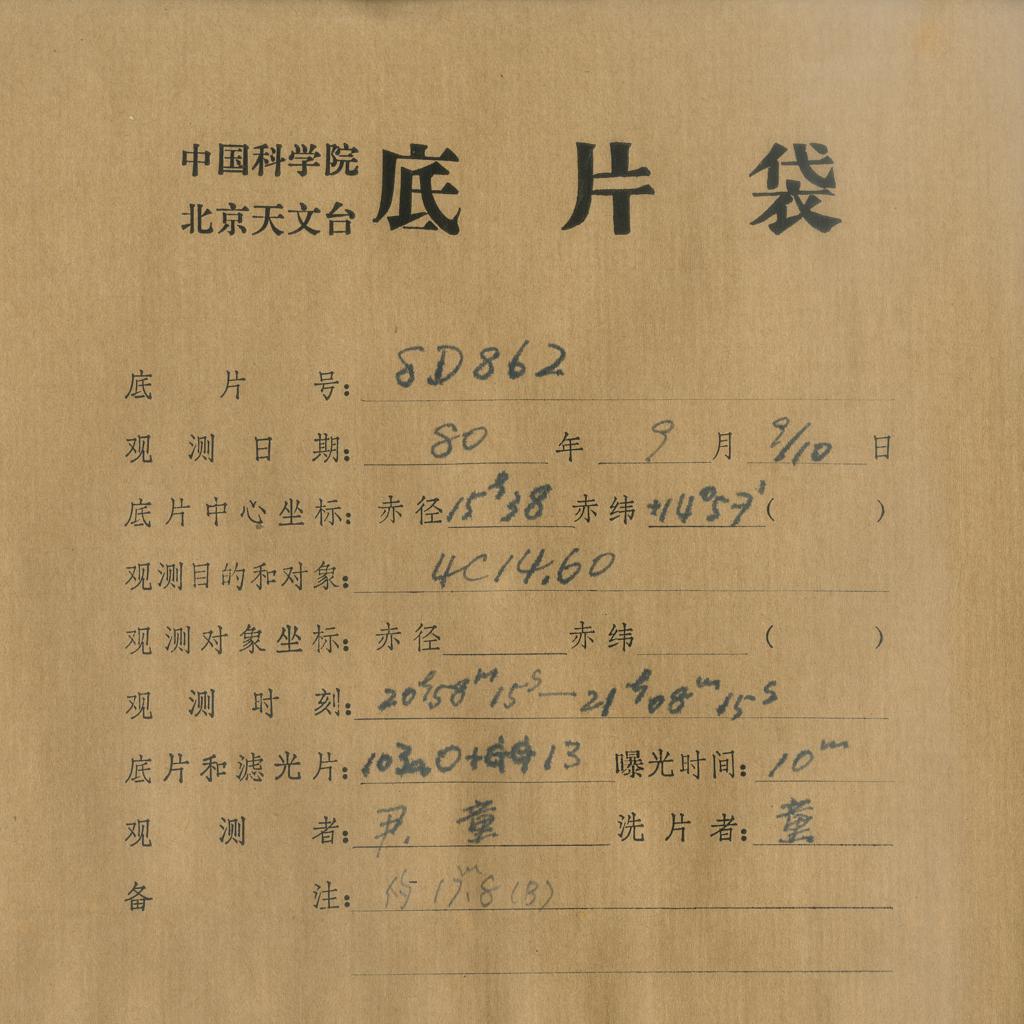 中国科学院
北京天文台 底片袋
底片号: 8D862
观测日期: 80 年 9 月 9/10 日
底片中心坐标: 赤径 15ʰ38 赤纬 +14°57′ ( )
观测目的和对象: 4C14.60
观测对象坐标: 赤径 赤纬 ( )
观测时刻: 20ʰ58ᵐ15ˢ—21ʰ08ᵐ15ˢ
底片和滤光片: 103aO+GG13 曝光时间: 10ᵐ
观测者: 尹. 童 洗片者: 童
备注: 17ᵐ.8(B)